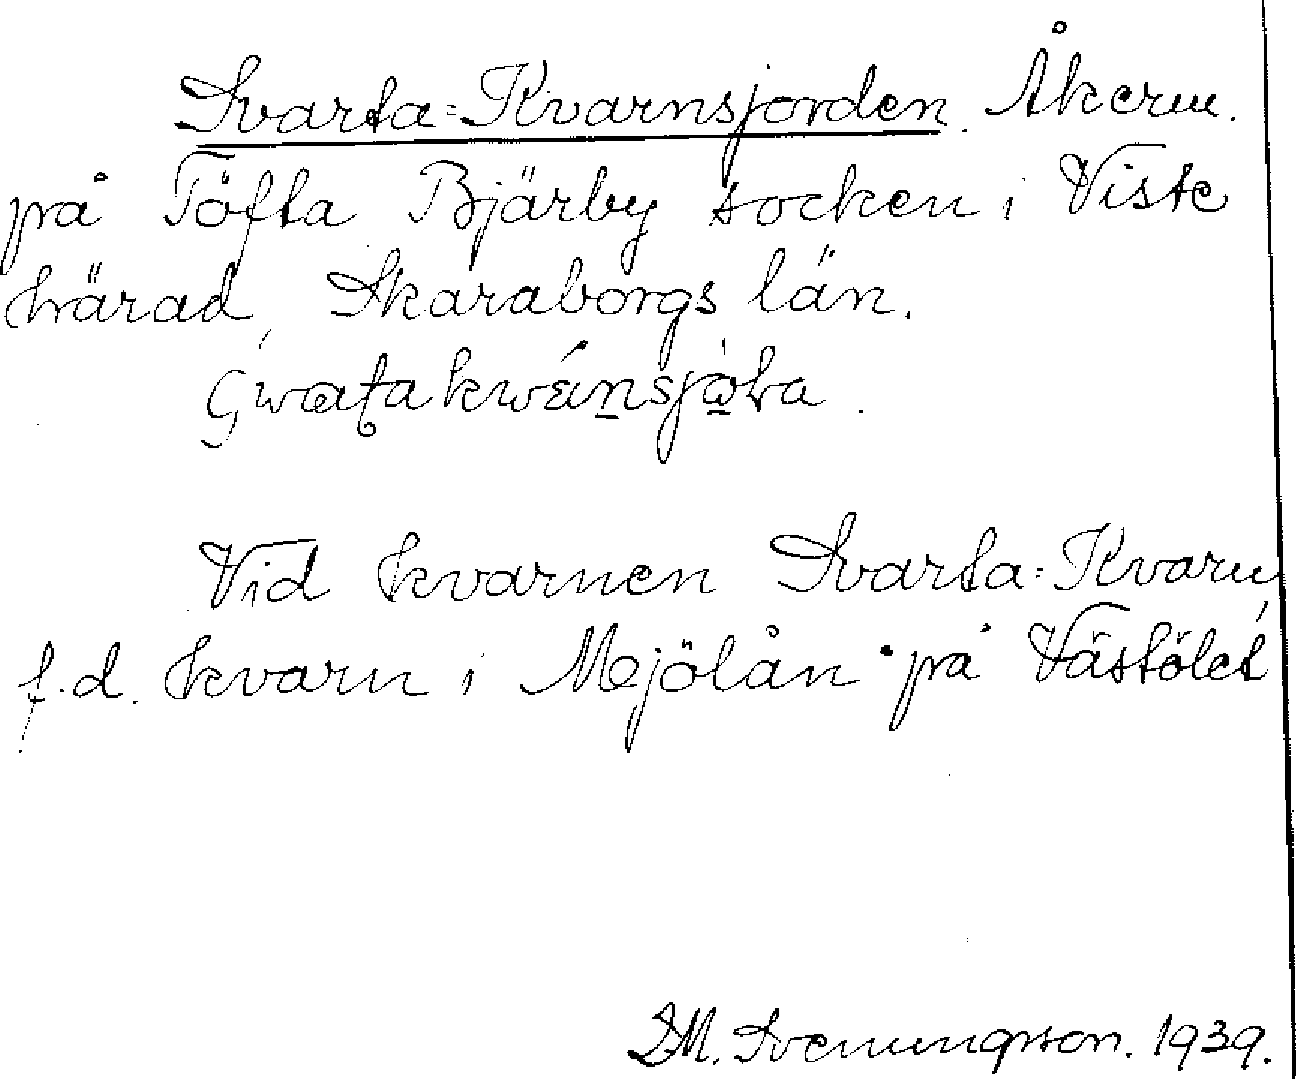 Svarta-Kvarnsjorden. Åkerm.
på Töfta Bjärby socken i Viste
härad, Skaraborgs län.
Vid kvarnen Svarta-Kvarn
f.d. kvarn i Mjölån på Västölet
D.M. Svenungsson. 1939.